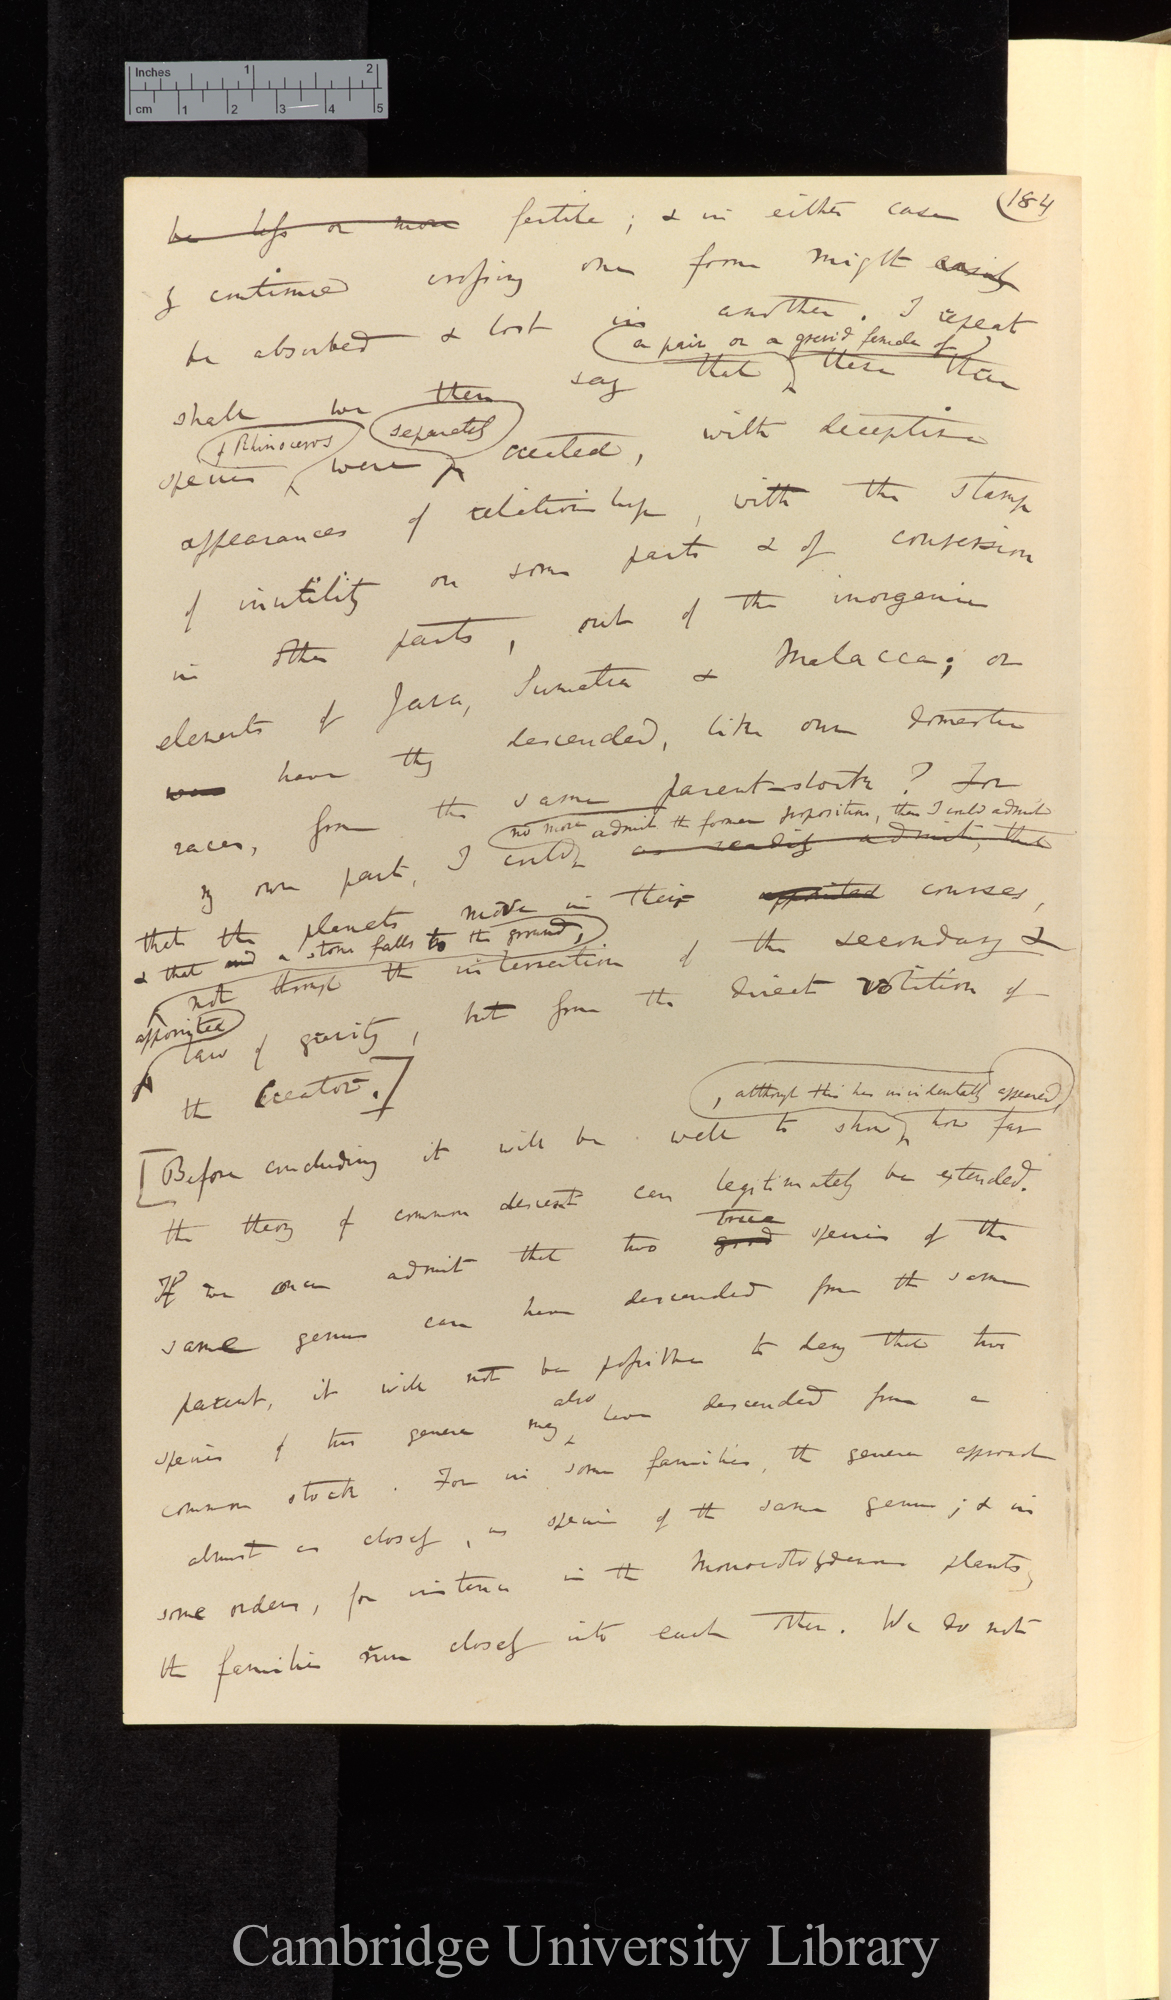 Inches 1 2
cm 1 2 3 4 5
184
be less or more fertile ; & in either case
by continued crossing one form might easily
be absorbed & lost in another. I repeat
a pair or a gravid female of
shall we then say that these three
of Rhinoceros separately
species were created, with deceptive
appearances of relationship, with the stamp
of inutility on some parts & of conversion
in other parts, out of the inorganic
elements of Java, Sumatra & Malacca; or
were have they descended, like our domestic
races, from the same parent-stock? For
no more admit the former proposition, than I could admit
my own part, I could as readily admit, that
that the planets move in their appointed courses,
& that and a stone falls to the ground,
not through the intervention of the secondary &
appointed
law of gravity, but from the direct volition of
the Creator.]
, although this has incidentally appeared,
[Before concluding it will be well to show how far
the theory of common descent can legitimately be extended.
true
If we once admit that two good species of the
same genus can have descended from the same
parent, it will not be possible to deny that two
also
species of two genera may have descended from a
common stock. For in some families, the genera approach
almost as closely, as species of the same genus; & in
some orders, for instance in the Monocotyledonous plants,
the families run closely into each other. We do not
Cambridge University Library